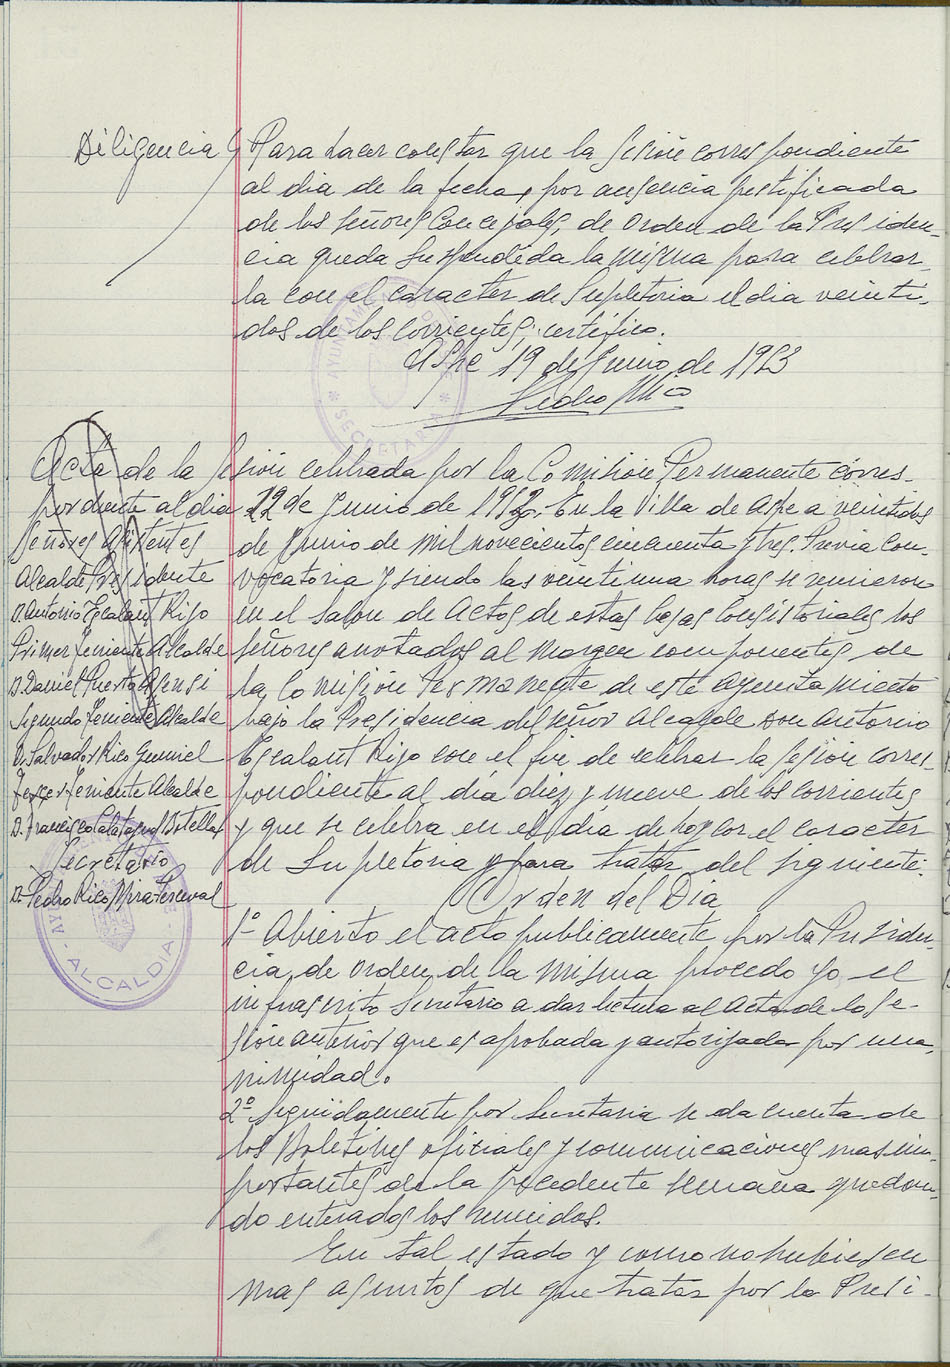 Diligencia } Para hacer constar que la sesión correspondiente
al dia de la fecha, por ausencia justificada
de los señores Concejales, de orden de la Presiden-
cia queda suspendida la misma para celebrar-
la con el caracter de Supletoria el dia veinti-
dos de los corrientes; certifico.
Aspe 19 de Junio de 1953
Pedro Rico
AYUNTAMIENTO DE ASPE * SECRETARIA *
Acta de la sesión celebrada por la Comisión Permanente corres-
pondiente al dia 19 de Junio de 1953. En la Villa de Aspe a veintidos
de Junio de mil novecientos cincuenta y tres. Previa con-
vocatoria y siendo las veintiuna horas se reunieron
en el salon de actos de estas Casas Consistoriales los
señores anotados al margen componentes de
la Comisión Permanente de este Ayuntamiento
bajo la Presidencia del señor Alcalde don Antonio
Escalant Rijo con el fin de celebrar la sesión corres-
pondiente al día diez y nueve de los corrientes
y que se celebra en el dia de hoy con el caracter
de Supletoria y para tratar del siguiente:
Señores Asistentes
Alcalde Presidente
D. Antonio Escalant Rijo
Primer Teniente Alcalde
D. Daniel Puerto Asensi
Segundo Teniente Alcalde
D. Salvador Rico Gumiel
Tercer Teniente Alcalde
D. Francisco Calatayud Botella
Secretario
D. Pedro Rico Mira-Perceval
ALCALDIA
Orden del Dia
1º Abierto el acto publicamente por la Presiden-
cia, de orden de la misma procedo yo el
infrascrito Secretario a dar lectura al acta de la se-
sión anterior que es aprobada y autorizada por una-
nimidad.
2º Seguidamente por Secretaria se da cuenta de
los Boletines oficiales y comunicaciones mas im-
portantes de la precedente semana quedan-
do enterados los reunidos.
En tal estado y como no hubiesen
mas asuntos de que tratar por la Presi-